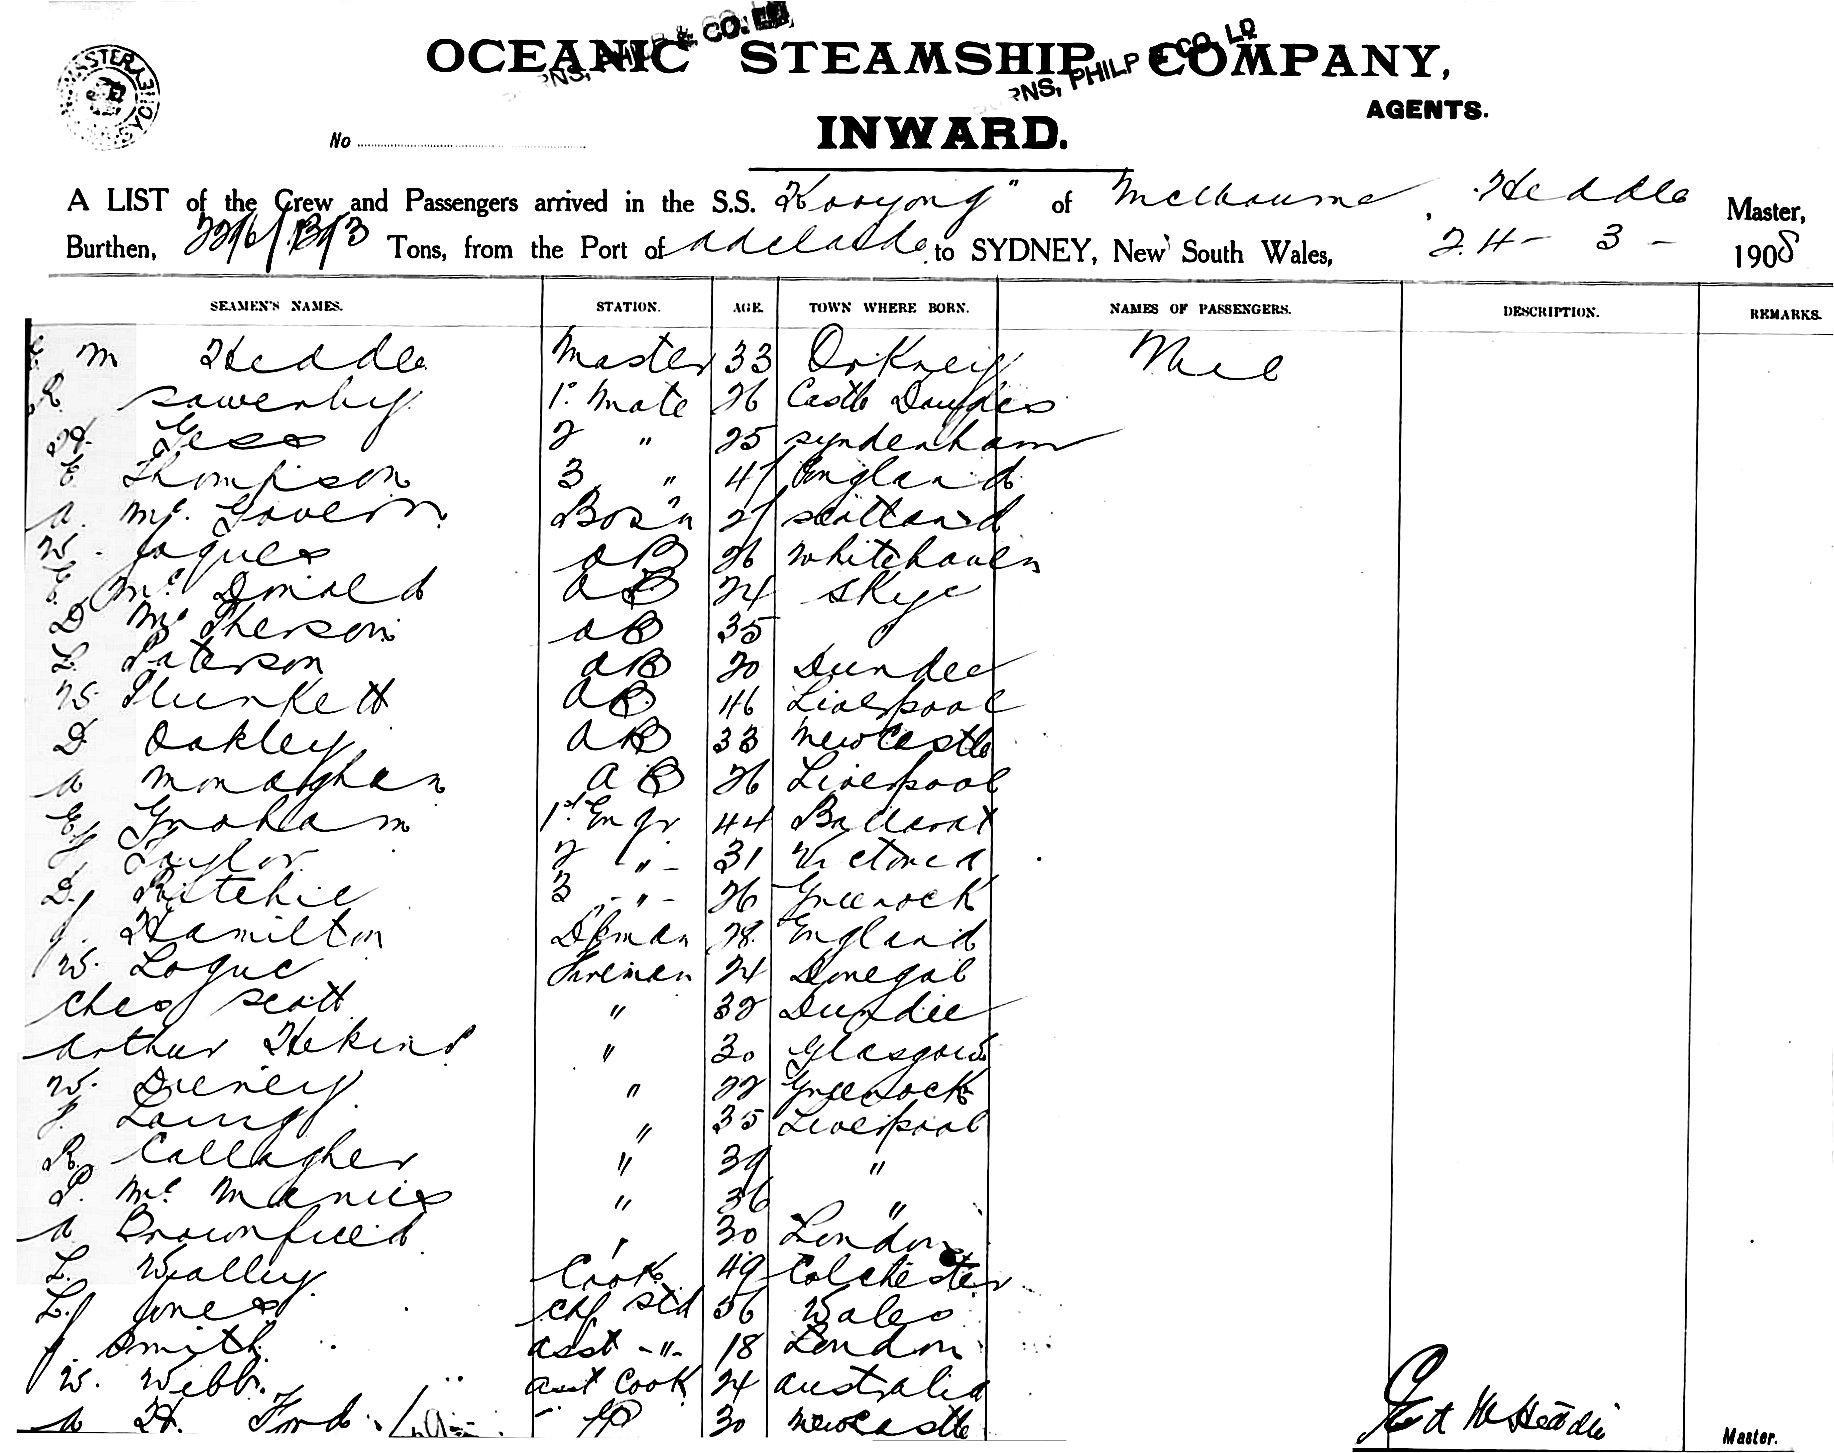 OCEANIC STEAMSHIP COMPANY,
RNS, PHILP & CO. LD
RNS, PHILP & CO. LD
AGENTS.
INWARD.
No
A LIST of the Crew and Passengers arrived in the S.S. Kooyong" of Melbourne, Heddle Master,
Burthen, Tons, from the Port of Adelaide to SYDNEY, New South Wales, 24 - 3 - 1908
SEAMEN'S NAMES. STATION. AGE. TOWN WHERE BORN. NAMES OF PASSENGERS. DESCRIPTION. REMARKS.
M Heddle Master 33 Orkney
R Sowerby 1st Mate 26 Castle Douglas
H. Gess 2 " 25 Syndenham
E Thompson 3 " 47 England
A. Mc. Govern Bos'n 27 Scotland
W. Jaques AB 26 Whitehaven
Mc Donald AB 24 Skye
D Mc Pherson AB 35
Paterson AB 20 Dundee
W. Plunkett AB 46 Liverpool
D Oakley AB 33 Newcastle
A Monaghan AB 26 Liverpool
Graham 1st Engr 44 Ballarat
Taylor 2 -"- 31 Victoria
D. Ritchie 3 -"- 26 Greenock
J. Hamilton Dkman 28 England
W. Logue Fireman 24 Donegal
Chas Scott " 32 Dundee
Arthur Hekins " 30 Glasgow
W. " 22 Greenock
J. Laing " 35 Liverpool
R. Callagher " 39 "
P. Mc Manus " 36 "
A Brownfield " 30 London
L. Walley Cook 49 Colchester
L. Jones Chf Std 56 Wales
J. Smith Asst -"- 18 London
W. Webb. Asst Cook 24 Australia
A H. Ford 30 Newcastle
Master.